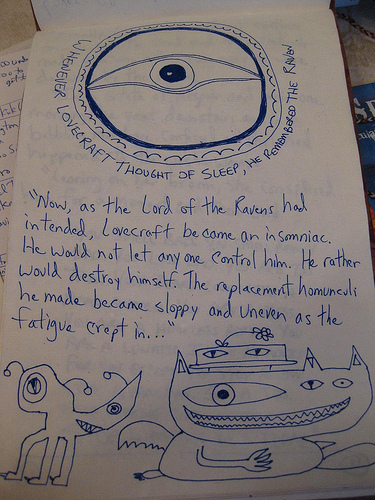 WHENEVER LOVECRAFT THOUGHT OF SLEEP, HE REMEMBERED THE RAVEN
"Now, as the Lord of the Ravens had
intended, Lovecraft became an insomniac.
He would not let anyone control him. He rather
would destroy himself. The replacement homunculi
he made became sloppy and uneven as the
fatigue crept in..."